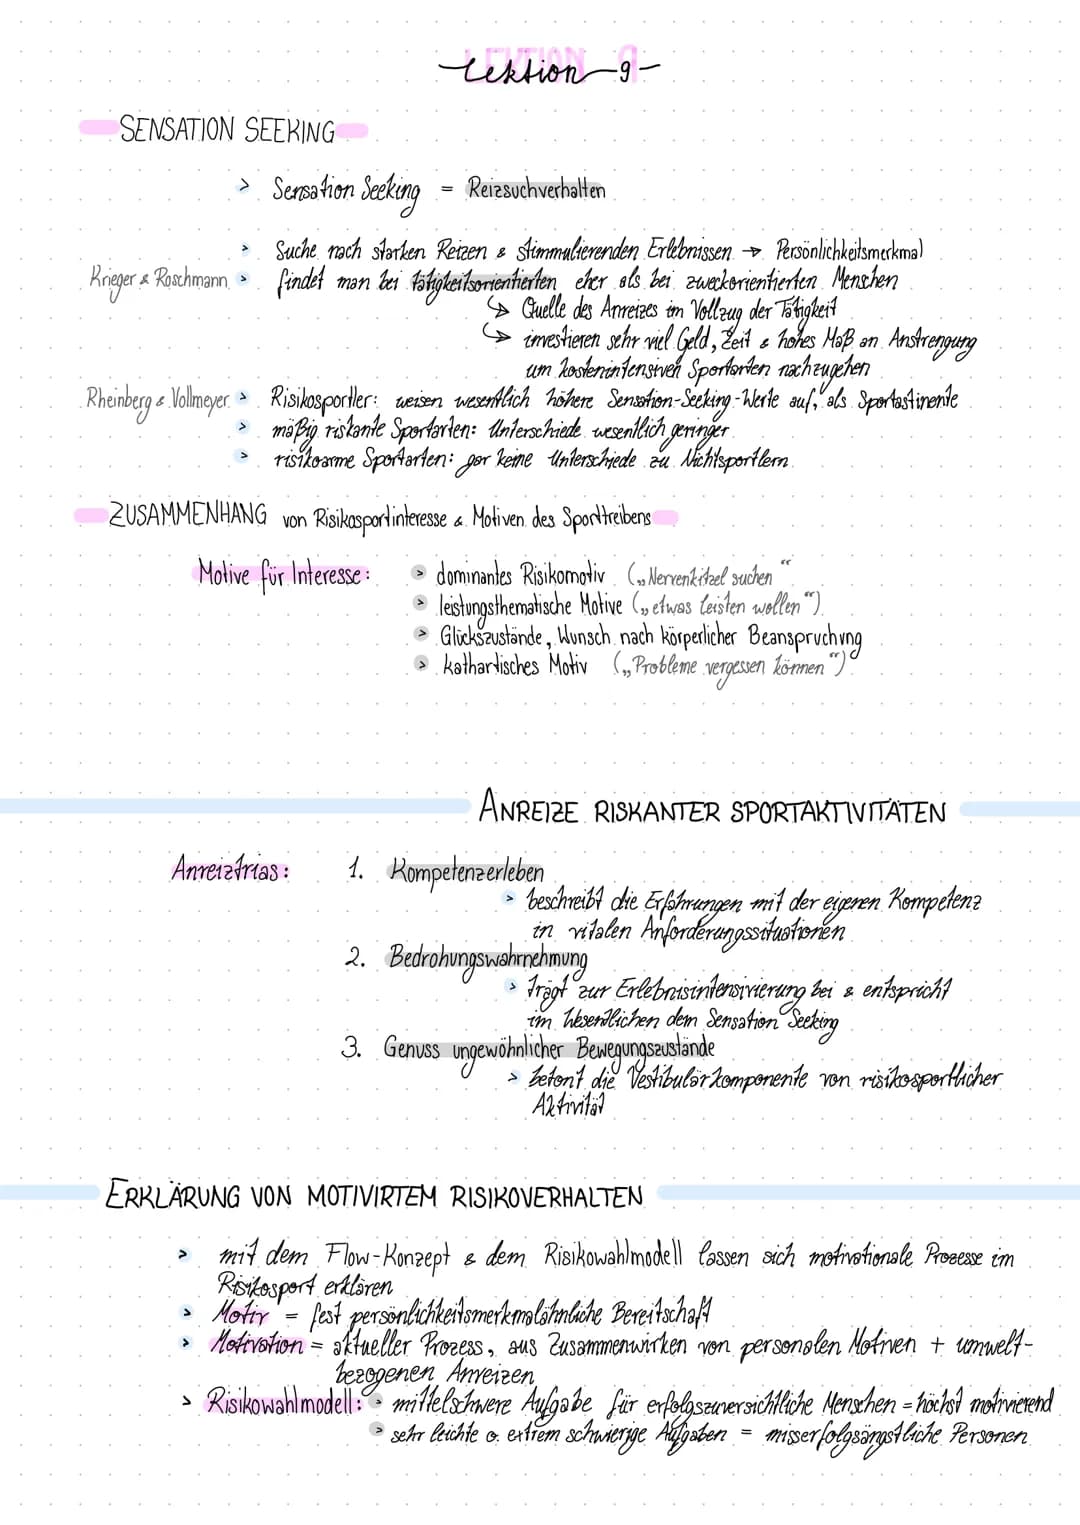 LEKTION 9
Lektion -9-
SENSATION SEEKING
> Sensation Seeking = Reizsuchverhalten
> Suche nach starken Reizen & stimmulierenden Erlebnissen → Persönlichkeitsmerkmal
Krieger & Roschmann > findet man bei tätigkeitsorientierten eher als bei zweckorientierten Menschen
↳ Quelle des Anreizes im Vollzug der Tätigkeit
↳ investieren sehr viel Geld, Zeit & hohes Maß an Anstrengung
um kostenintensiven Sportarten nachzugehen
Rheinberg & Vollmeyer > Risikosportler: weisen wesentlich höhere Sensation-Seeking-Werte auf, als Sportastinente
> mäßig riskante Sportarten: Unterschiede wesentlich geringer
> risikoarme Sportarten: gar keine Unterschiede zu Nichtsportlern
ZUSAMMENHANG von Risikosportinteresse & Motiven des Sporttreibens
Motive für Interesse: > dominantes Risikomotiv („Nervenkitzel suchen“
> leistungsthematische Motive („etwas leisten wollen“)
> Glückszustände, Wunsch nach körperlicher Beanspruchung
> kathartisches Motiv („Probleme vergessen können“)
ANREIZE RISKANTER SPORTAKTIVITÄTEN
Anreiztrias: 1. Kompetenzerleben
> beschreibt die Erfahrungen mit der eigenen Kompetenz
in vitalen Anforderungssituationen
2. Bedrohungswahrnehmung
> trägt zur Erlebnisintensivierung bei & entspricht
im Wesendlichen dem Sensation Seeking
3. Genuss ungewöhnlicher Bewegungszustände
> betont die Vestibulärkomponente von risikosportlicher
Aktivität
ERKLÄRUNG VON MOTIVIRTEM RISIKOVERHALTEN
> mit dem Flow-Konzept & dem Risikowahlmodell lassen sich motivationale Prozesse im
Risikosport erklären
> Motiv = fest persönlichkeitsmerkmalähnliche Bereitschaft
> Motivation = aktueller Prozess, aus Zusammenwirken von personalen Motiven + umwelt-
bezogenen Anreizen
> Risikowahlmodell: > mittelschwere Aufgabe für erfolgszuversichtliche Menschen = höchst motivierend
> sehr leichte o. extrem schwierige Aufgaben = misserfolgsängstliche Personen